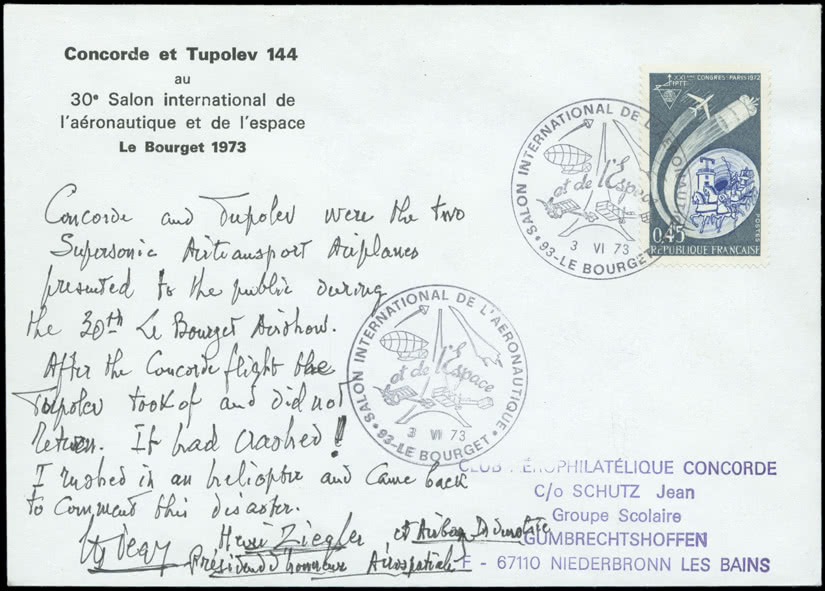 Concorde et Tupolev 144
au
30e Salon international de
l'aéronautique et de l'espace
Le Bourget 1973
XXIème CONGRES · PARIS 1972
IPTT
0,45
POSTES
REPUBLIQUE FRANÇAISE
SALON INTERNATIONAL DE L'AERONAUTIQUE
et de l'Espace
3 VI 73
93-LE BOURGET
Concorde and Tupolev were the two
Supersonic Airtransport Airplanes
presented to the public during
the 30th Le Bourget Airshow.
After the Concorde flight the
Tupolev took of and did not
return. It had crashed!
I rushed in an helicoptre and came back
to comment this disaster.
Henri Ziegler et Airbus Industrie
Président d'honneur Aérospatiale
SALON INTERNATIONAL DE L'AERONAUTIQUE
et de l'Espace
3 VI 73
93-LE BOURGET
CLUB AÉROPHILATÉLIQUE CONCORDE
C/o SCHUTZ Jean
Groupe Scolaire
GUMBRECHTSHOFFEN
F - 67110 NIEDERBRONN LES BAINS